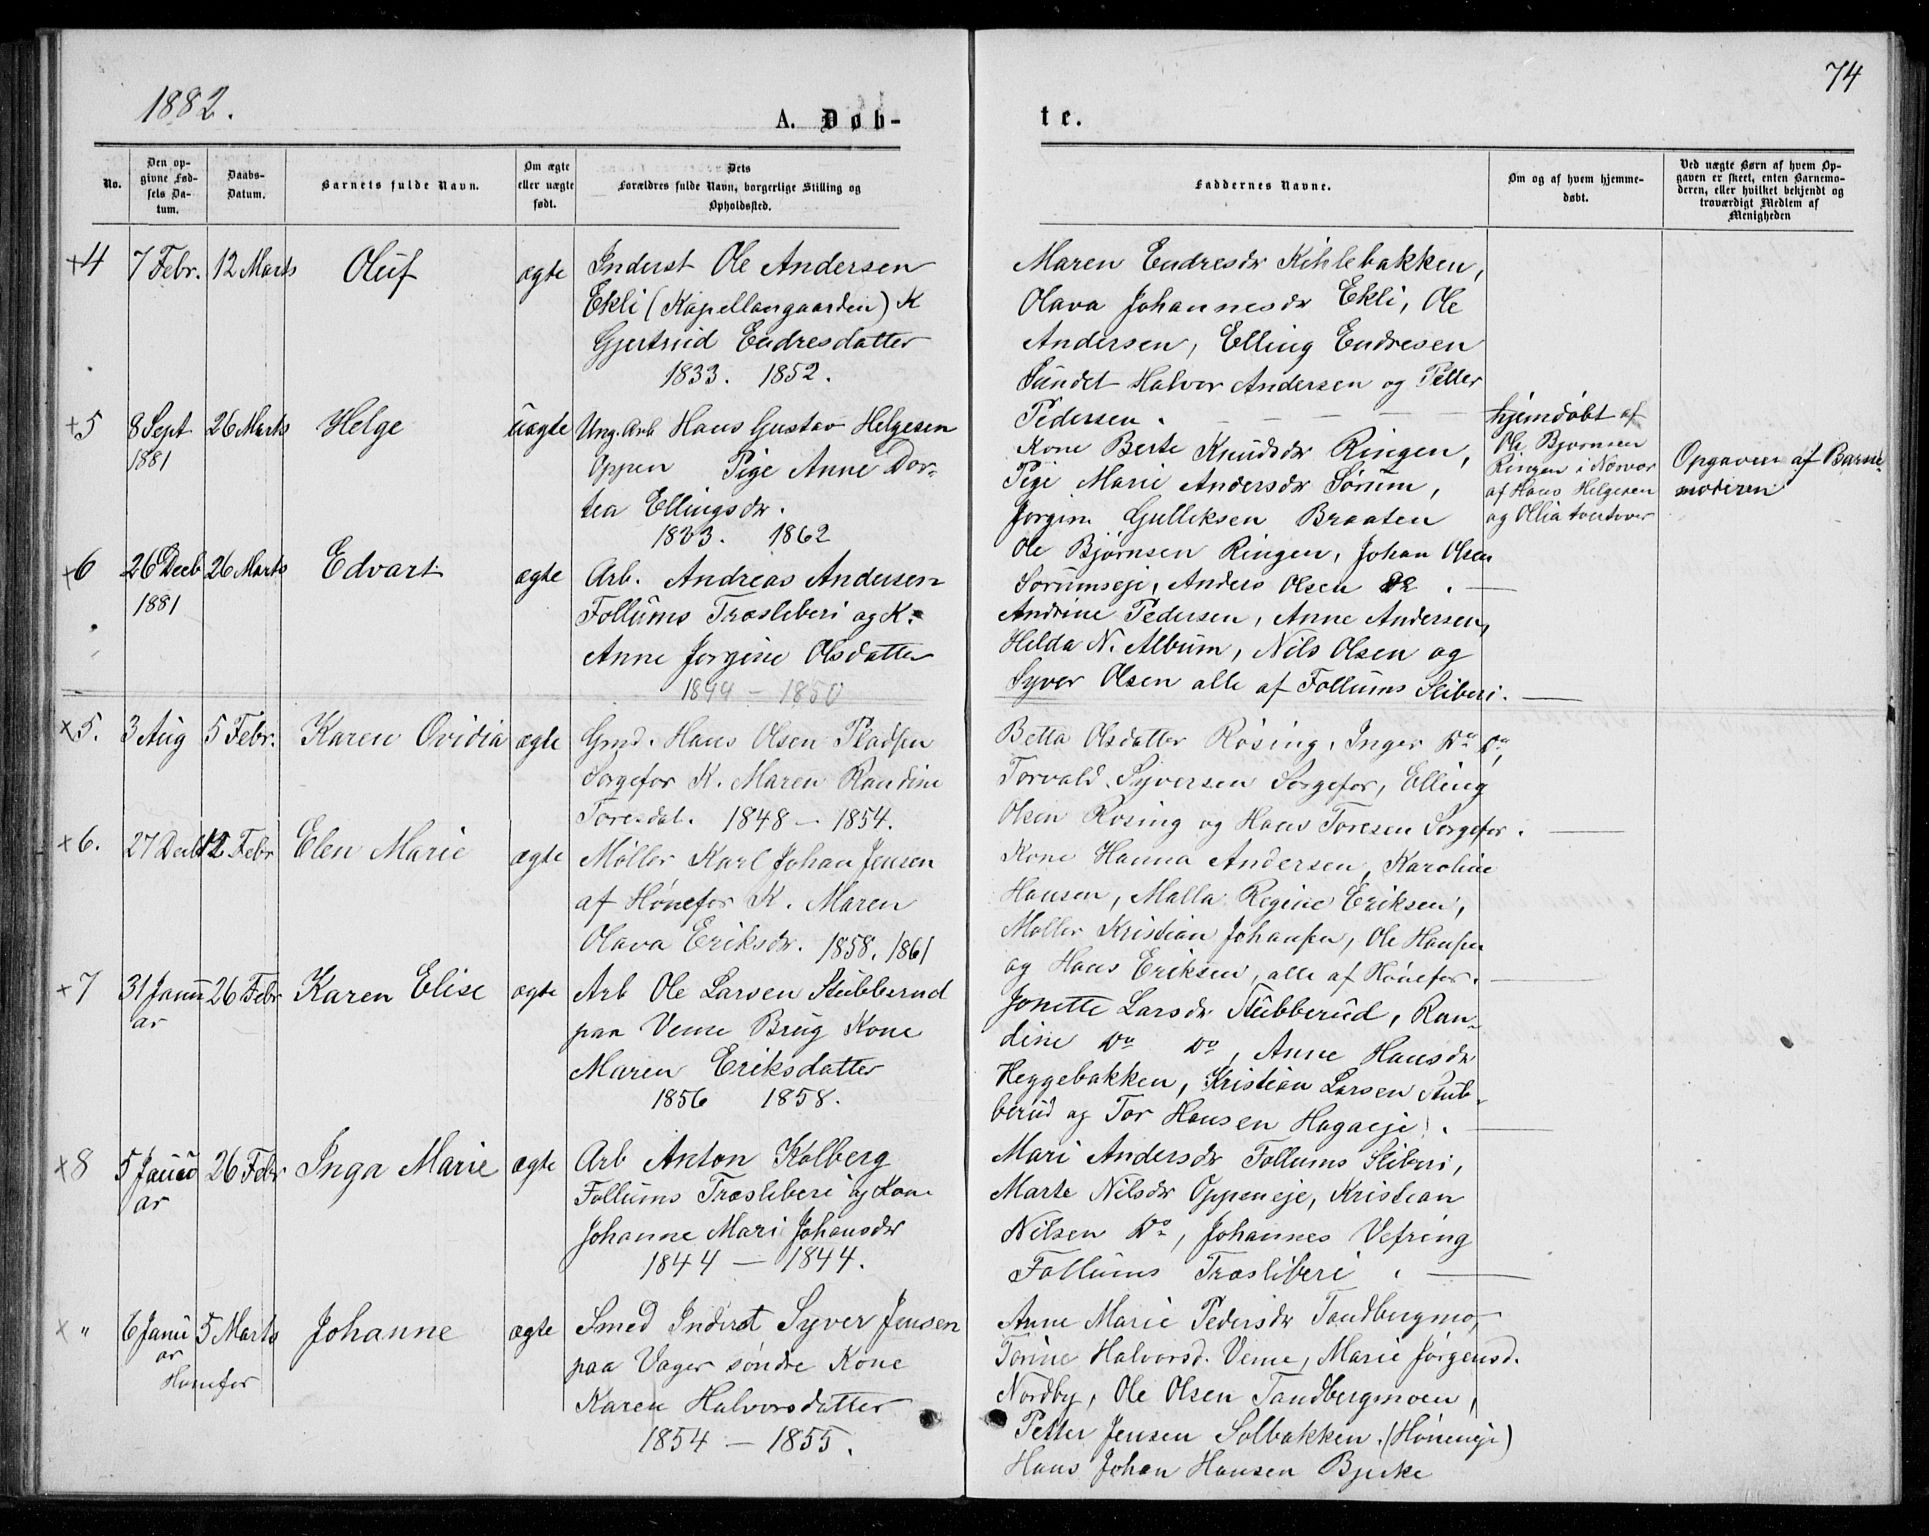 74
1882.
A. Døb-
te.
No.
Den op-
givne Fød-
sels Da-
tum.
Daabs-
Datum.
Barnets fulde Navn.
Om ægte
eller uægte
født.
Dets
Forældres fulde Navn, borgerlige Stilling og
Opholdssted.
Faddernes Navne.
Om og af hvem hjemme-
døbt.
Ved uægte Børn af hvem Op-
gaven er skeet, enten Barnemo-
deren, eller hvilket bekjendt og
troværdigt Medlem af
Menigheden
+4 7 Febr. 12 Marts Oluf ægte
Inderst Ole Andersen
Ekli (Kapellangaarden) K
Gjertrud Endresdatter
1833. 1852.
Maren Endresdr Kihlebakken,
Olava Johannesdr Ekli, Ole
Andersen, Elling Endresen
Sundet Halvor Andersen og Petter
Pedersen.
+5 8 Sept 1881 26 Marts Helge uægte
Ung. Arb Hans Gustav Helgesen
Oppen Pige Anne Dor-
tea Ellingsdr.
1833. 1862
Kone Berte Knudsdr Ringen,
Pige Marie Andersdr Sørum,
Jørgen Gulliksen Braaten
Ole Bjørnsen Ringen, Johan Olsen
Sørumseje, Anders Olsen
hjemdøbt af
Ole Bjørnsen
Ringen i Nærvær
af Hans Helgesen
og Ollia
Opgaven af Barne-
moderen
+6 26 Decb 1881 26 Marts Edvart ægte
Arb. Andreas Andersen
Follums Træsliberi og K.
Anne Jørgine Olsdatter
1844 - 1850
Andrine Pedersen, Anne Andersen,
Helda N. Album, Nils Olsen og
Syver Olsen alle af Follums Sliberi.
x5. 3 Aug 5 Febr. Karen Ovidia ægte
Gmd. Hans Olsen Pladsen
Sørgefos K. Maren Randine
Toresdat. 1848 - 1854.
Betta Olsdatter Rösing, Inger Do Do,
Torvald Syversen Sorgefos, Elling
Olsen Rosing og Hans Toresen Sorgefos.
x6. 27 Decb 12 Febr Elen Marie ægte
Møller Karl Johan Jensen
af Hønefos K. Maren
Olava Eriksdr. 1858. 1861
Kone Hanna Andersen, Karoline
Hansen, Malla Regine Eriksen,
Møller Kristian Johansen, Ole Hansen
og Hans Eriksen, alle af Hønefos.
x7 31 Janu
ar 26 Febr Karen Elise ægte
Arb Ole Larsen Stubberud
paa Veme Brug Kone
Maren Eriksdatter
1856 1858.
Jonette Larsdr Stubberud, Ran-
dine Do Do, Anne Hansdr
Heggebakken, Kristian Larsen Stub-
berud og Tor Hansen Hagaeje.
x8 5 Janu
ar 26 Febr Inga Marie ægte
Arb Anton Kolberg
Follums Træsliberi og Kone
Johanne Mari Johansdr
1844 - 1844.
Mari Andersdr Follums Sliberi,
Marte Nilsdr Oppeneje, Kristian
Nilsen Do, Johannes Vefring
Follums Træsliberi.
x " 6 Janu
ar 5 Marts
Hønefos Johanne ægte
Smed Inderst Syver Jensen
paa Vager søndre Kone
Karen Halvorsdatter
1854 - 1855.
Anne Marie Pedersdr Tandbergmo,
Torine Halvorsd. Veme, Marie Jørgensd.
Nordby, Ole Olsen Tandbergmoen,
Petter Jensen Solbakken (Høneneje)
Hans Johan Hansen Bjerke